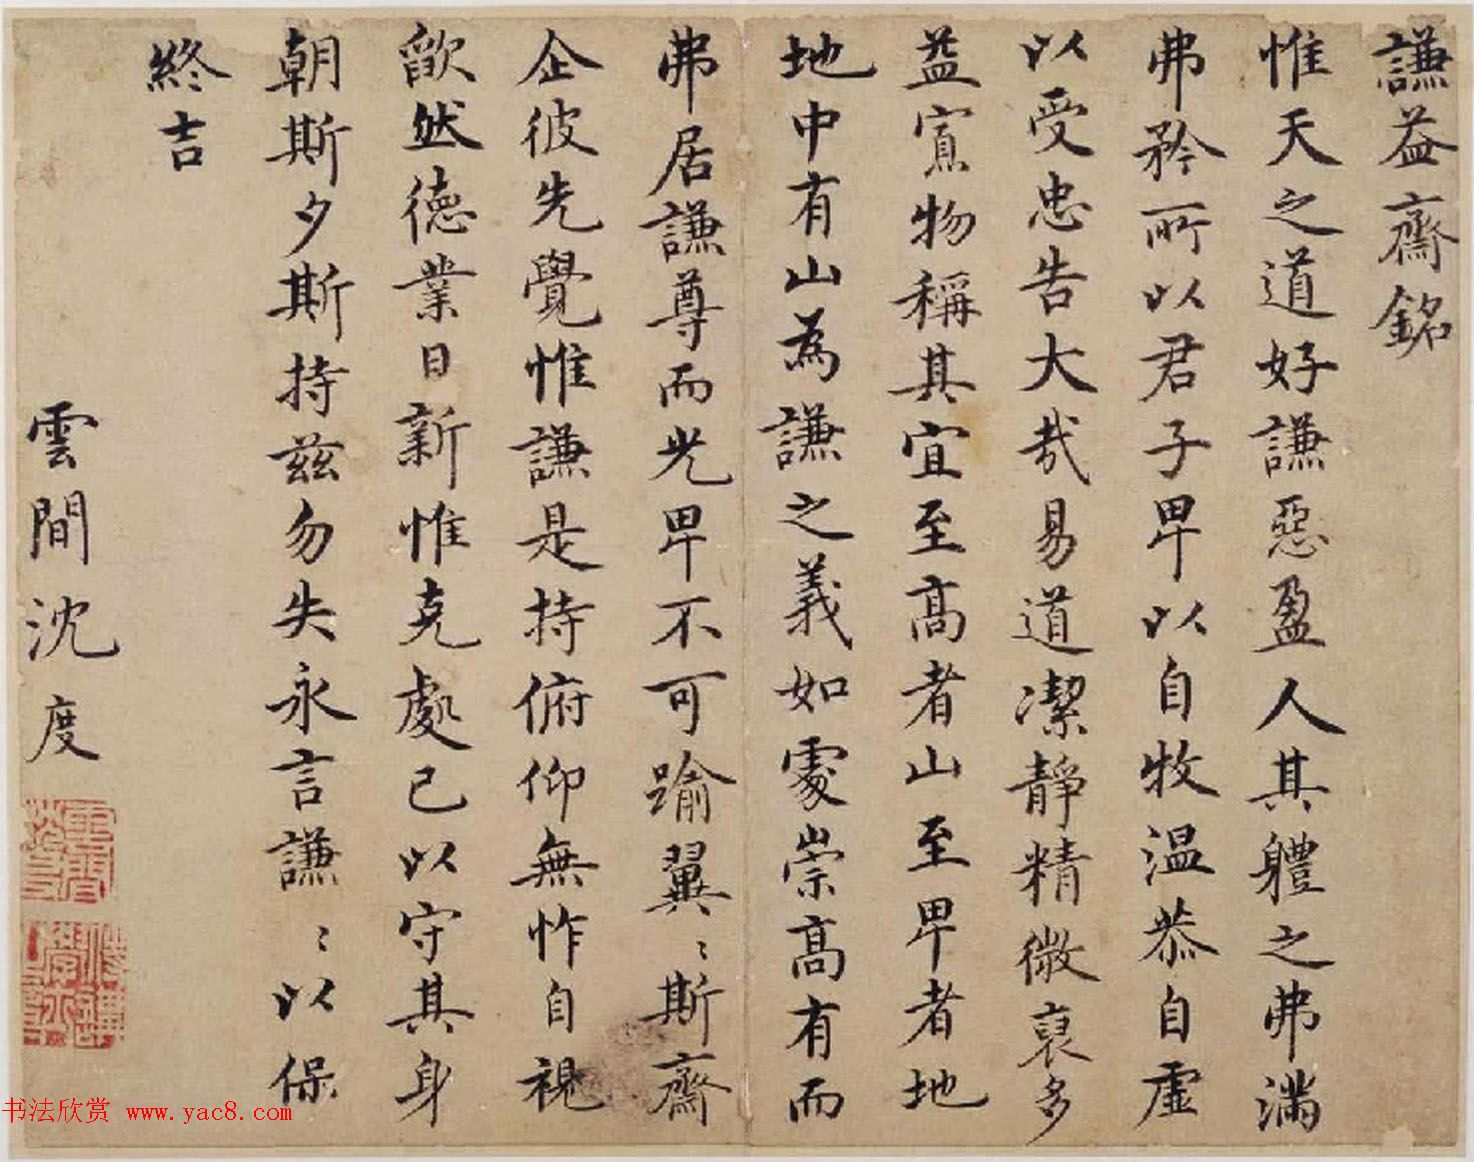 謙益齋銘
惟天之道好謙惡盈人其體之弗滿
弗矜所以君子卑以自牧温恭自虛
以受忠告大哉易道潔靜精微裒多
益寡物稱其宜至高者山至卑者地
地中有山為謙之義如處崇高有而
弗居謙尊而光卑不可踰翼〻斯齋
企彼先覺惟謙是持俯仰無怍自視
歉然德業日新惟克處己以守其身
朝斯夕斯持茲勿失永言謙〻以保
終吉
雲間沈度
书法欣赏 www.yac8.com